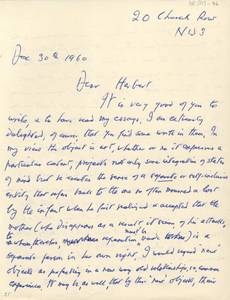 20 Church Row
NW3
Dec 30th 1960
Dear Herbert
It is very good of you to
write, & to have read my essays. I am extremely
delighted, of course, that you find some worth in them. In
my view the object is not, whether or no it expresses a
particular content, projects not only some integration of states
of mind but re-creates the sense of a self-inclusive
entity that refers back to the as so often mourned & lost
by the infant when he first realised & accepted that the
mother (who disappears as a result it seems, of his attacks,
separation, is a
separate person in her own right. I would regard 'new'
objects as performing in a new way old relationships, in common
experience. It may be, as well, that by this 'new' objects, their